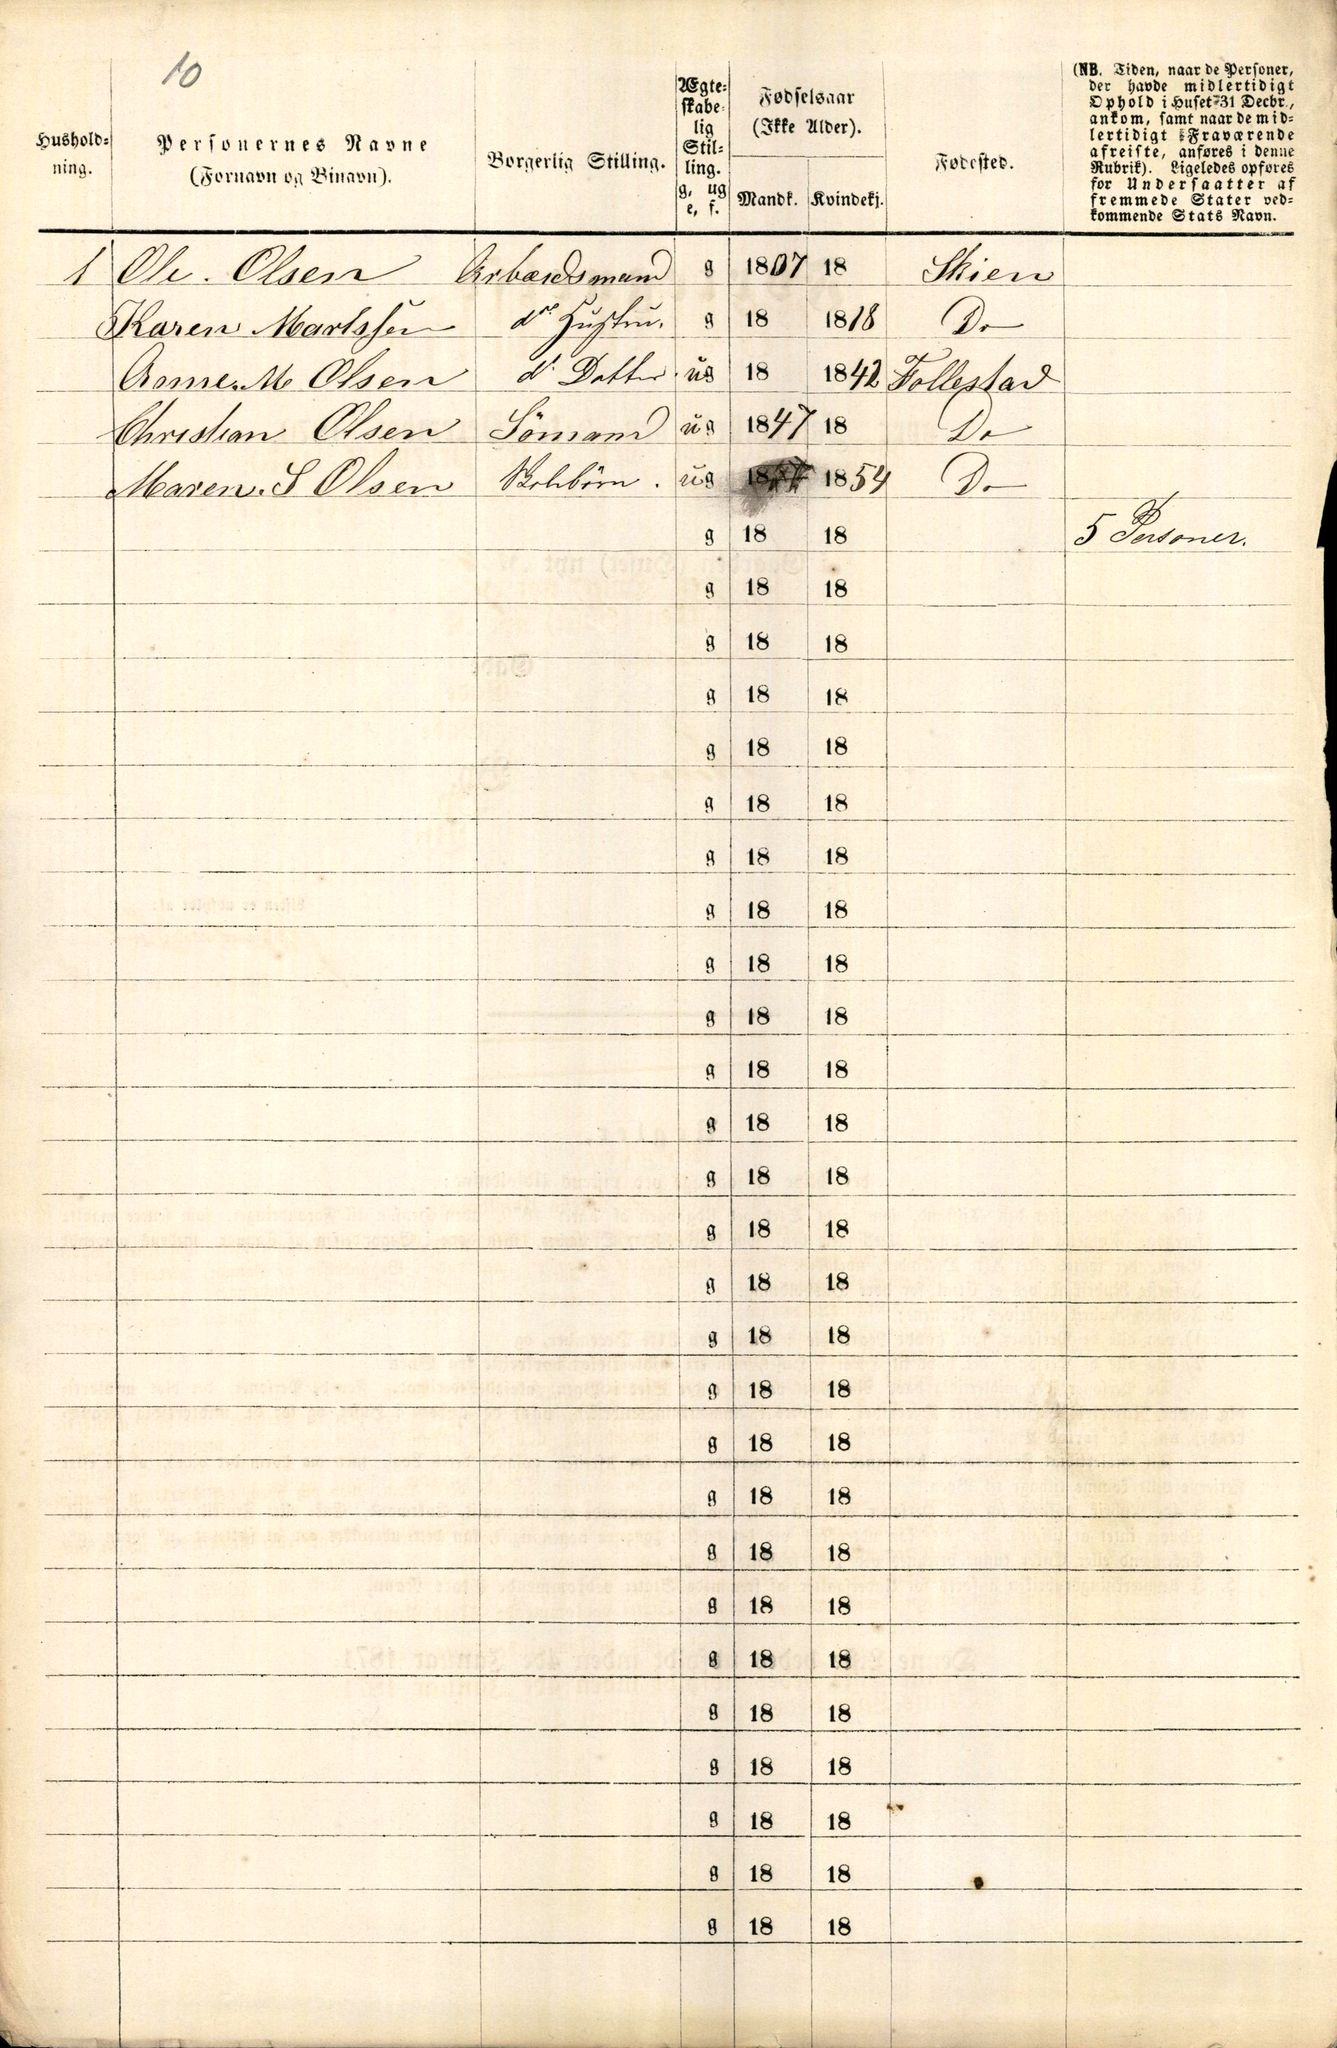 10
Hushold-
ning.
Personernes Navne
(Fornavn og Binavn).
Borgerlig Stilling.
Ægte-
skabe-
lig
Stil-
ling.
g, ug
e, f.
Fødselsaar
(Ikke Alder).
Mandk. Kvindekj.
Fødested.
(NB. Tiden, naar de Personer,
der havde midlertidigt
Ophold i Huset 31 Decbr.,
ankom, samt naar de mid-
lertidigt Fraværende
afreiste, anføres i denne
Rubrik). Ligeledes opføres
for Undersaatter af
fremmede Stater ved-
kommende Stats Navn.
1 Ole. Olsen Arbeidsmand g 1807 18 Skien
Karen Marthsen ds Hustru. g 18 1818 Do
Anne. M Olsen ds Datter ug 18 1842 Follestad
Christian Olsen Sömand ug 1847 18 Do
Maren. S Olsen Skolebörn. ug 18 1854 Do
g 18 18 5 Personer.
g 18 18
g 18 18
g 18 18
g 18 18
g 18 18
g 18 18
g 18 18
g 18 18
g 18 18
g 18 18
g 18 18
g 18 18
g 18 18
g 18 18
g 18 18
g 18 18
g 18 18
g 18 18
g 18 18
g 18 18
g 18 18
g 18 18
g 18 18
g 18 18
g 18 18
g 18 18